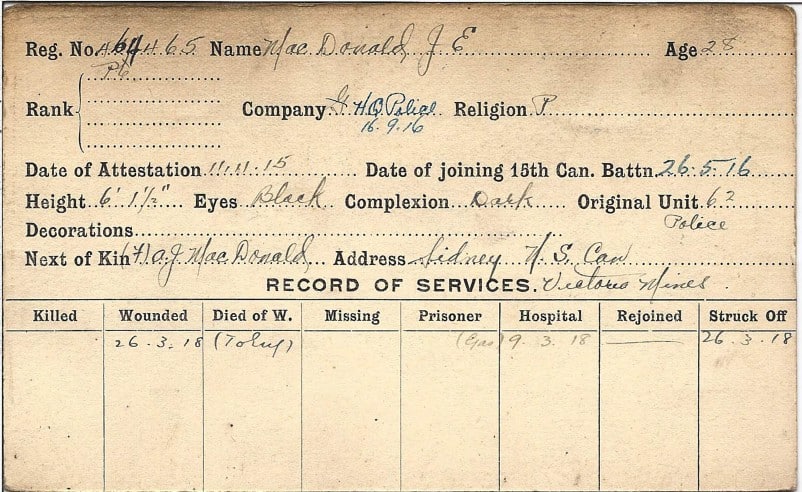 Reg. No. 464465 Name Mac Donald, J E Age 28
Pte
Rank Company H.Q. Police Religion P
16.9.16
Date of Attestation 11.11.15 Date of joining 15th Can. Battn. 26.5.16
Height 6' 1½" Eyes Black Complexion Dark Original Unit 62
Decorations Police
Next of Kin (F) A.J. Mac Donald Address Sidney N.S. Can
RECORD OF SERVICES. Victoria Mines.
Killed Wounded Died of W. Missing Prisoner Hospital Rejoined Struck Off
26.3.18 (Gas) 9.3.18 26.3.18